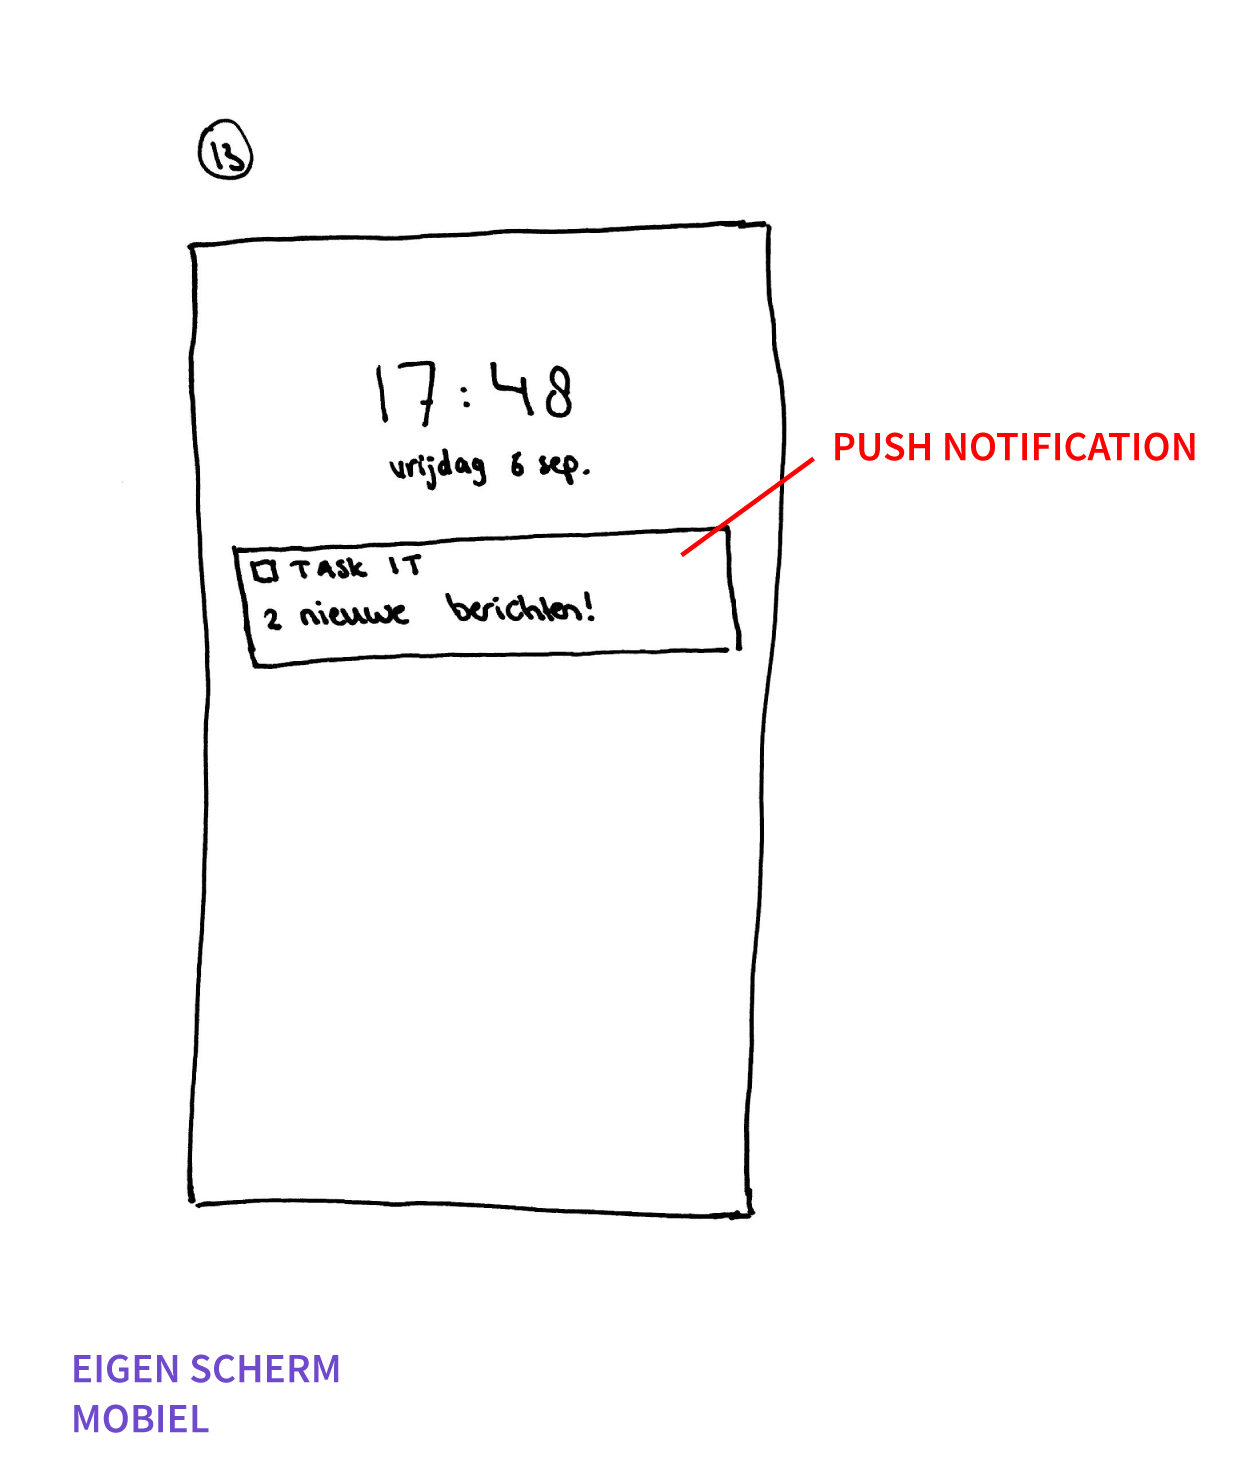 13
17:48
vrijdag 6 sep.
PUSH NOTIFICATION
TASK IT
2 nieuwe berichten!
EIGEN SCHERM
MOBIEL